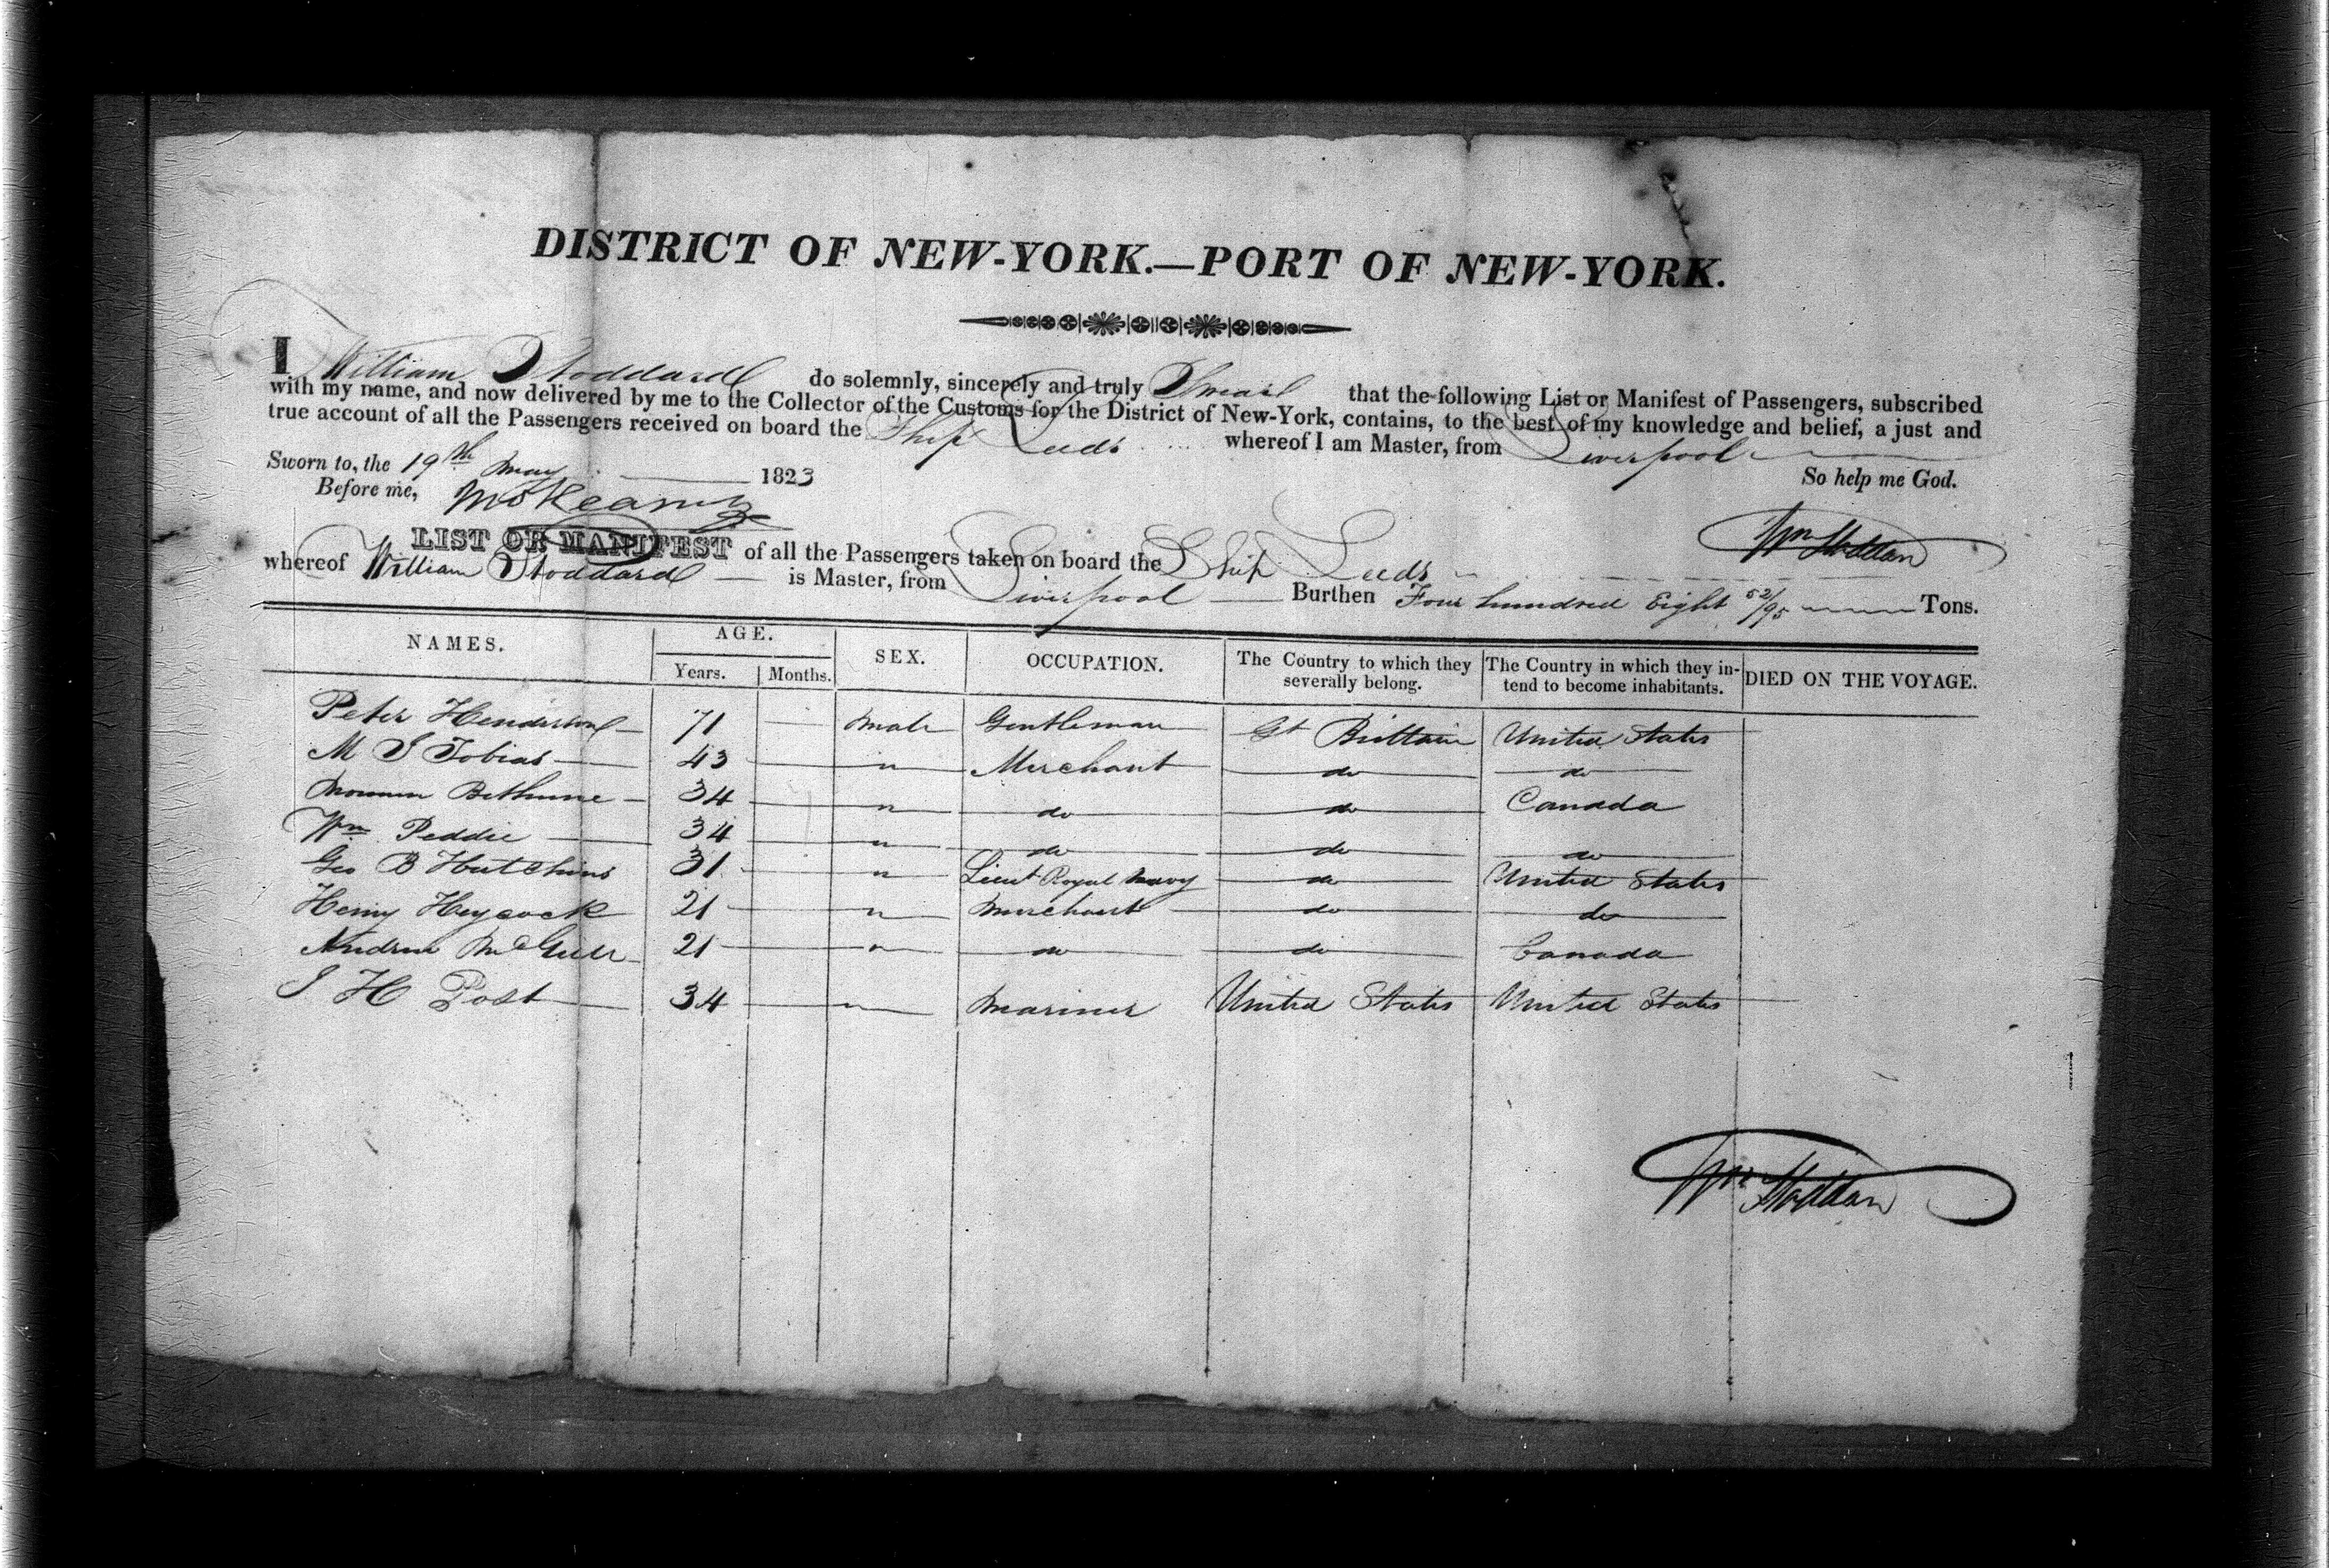 DISTRICT OF NEW-YORK.—PORT OF NEW-YORK.
I William Stoddard do solemnly, sincerely and truly Swear that the following List or Manifest of Passengers, subscribed
with my name, and now delivered by me to the Collector of the Customs for the District of New-York, contains, to the best of my knowledge and belief, a just and
true account of all the Passengers received on board the Ship Leeds whereof I am Master, from Liverpool
Sworn to, the 19th May 1823 So help me God.
Before me,
Wm Stoddard
LIST OR MANIFEST of all the Passengers taken on board the Ship Leeds
whereof William Stoddard is Master, from Liverpool Burthen Four hundred Eight 52/95 Tons.
NAMES. AGE. SEX. OCCUPATION. The Country to which they severally belong. The Country in which they intend to become inhabitants. DIED ON THE VOYAGE.
Years. Months.
Peter Henderson 71 male Gentleman Gt Brittain United States
M I Tobias 43 " Merchant do do
Norman Bethune 34 " do do Canada
Wm Peddie 34 " do do do
Geo B Hutchins 31 " Lieut Royal Navy do United States
Henry Heycock 21 " Merchant do do
Andrew 21 " do do Canada
J H Post 34 " Mariner United States United States
Wm Stoddard